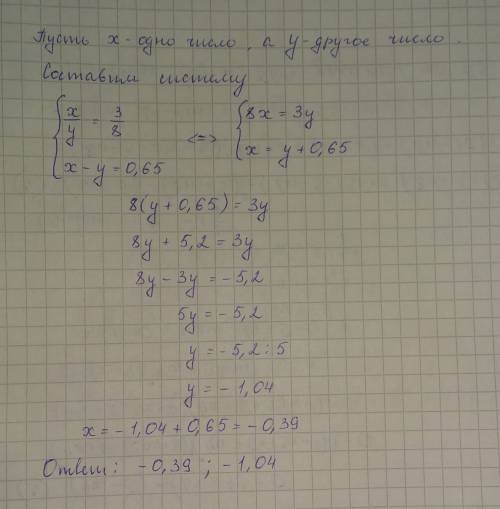 Пусть x - одно число, а y - другое число.
Составим систему
{ x/y = 3/8 <=> { 8x = 3y
{ x - y = 0,65 { x = y + 0,65
8(y + 0,65) = 3y
8y + 5,2 = 3y
8y - 3y = - 5,2
5y = - 5,2
y = - 5,2 : 5
y = - 1,04
x = - 1,04 + 0,65 = - 0,39
Ответ: - 0,39 ; - 1,04